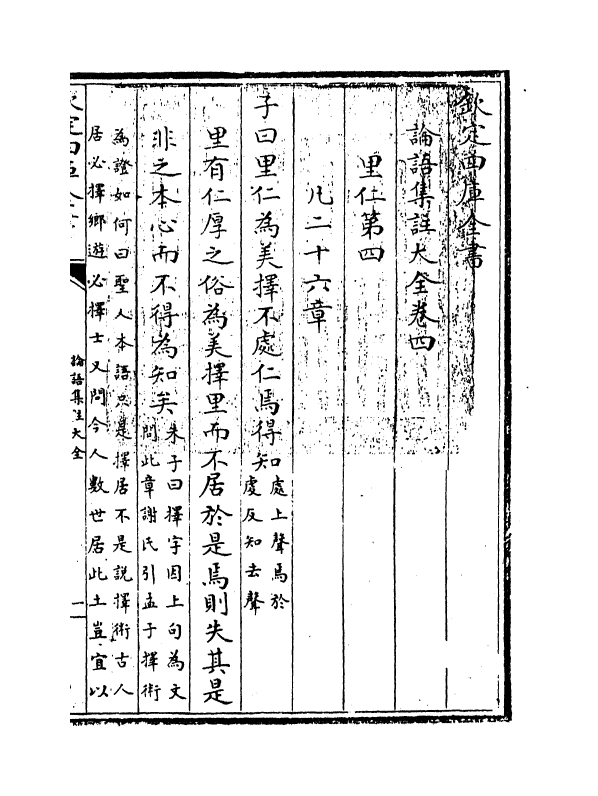 欽定四庫全書
論語集註大全卷四
里仁第四
凡二十六章
子曰里仁為美擇不處仁焉得知處上聲焉於
虔反知去聲
里有仁厚之俗為美擇里而不居於是焉則失其是
非之本心而不得為知矣朱子曰擇字因上句為文
問此章謝氏引孟子擇術
為證如何曰聖人本語只是擇居不是說擇術古人
居必擇鄉遊必擇士又問今人數世居此土豈宜以
欽定四庫全書
論語集註大全
一